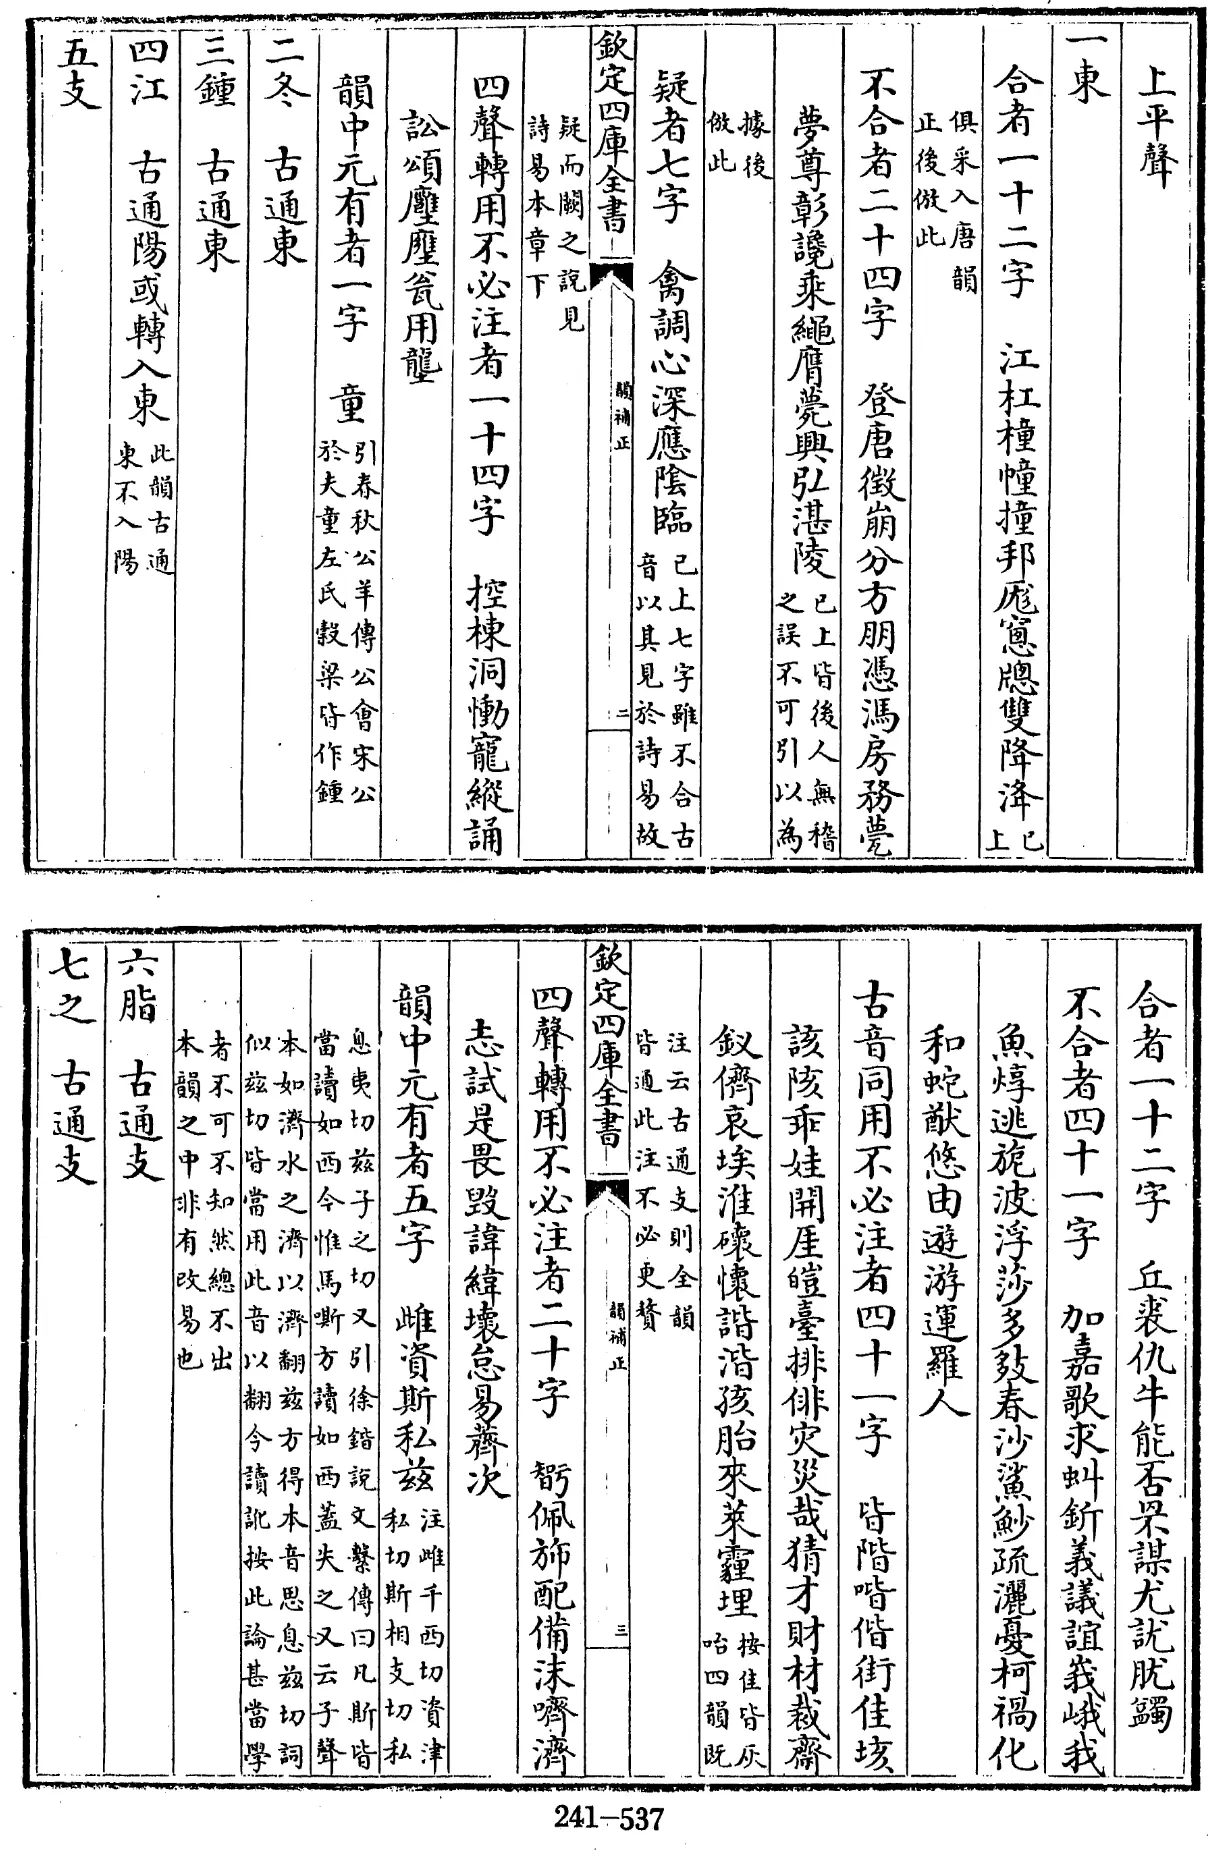 上平聲
一東
合者一十二字　江杠橦幢撞邦厖窻牎雙降洚已上
俱采入唐韻正後倣此
不合者二十四字　登唐徴崩分方朋憑馮房務薨
夢尊彰讒乘繩膺薨興弘湛陵已上皆後人無稽之誤不可引以為
據後倣此
疑者七字　禽調心深應陰臨已上七字雖不合古音以其見於詩易故
欽定四庫全書
韻補正
二
疑而闕之說見詩易本章下
四聲轉用不必注者一十四字　控棟洞慟寵縱誦
訟頌廱壅瓮用壟
韻中元有者一字　童引春秋公羊傳公會宋公於夫童左氏穀梁皆作鍾
二冬　古通東
三鍾　古通東
四江　古通陽或轉入東此韻古通東不入陽
五支
合者一十二字　丘裘仇牛能否罘謀尤訧肬蠲
不合者四十一字　加嘉歌求虯釿義議誼莪峨我
魚焞逃旎波浮莎多敠春沙鯊魦疏灑憂柯禍化
和蛇猷悠由遊游運羅人
古音同用不必注者四十一字　皆階喈偕街佳垓
該陔乖娃開厓皚臺排俳灾災哉猜才財材裁齋
釵儕哀埃淮磙懷諧湝孩胎來萊霾埋按佳皆灰咍四韻既
欽定四庫全書
韻補正
三
注云古通支則全韻皆通此注不必更贅
四聲轉用不必注者二十字　智佩斾配備沬嚌濟
志試是畏毀諱緯壞怠易薺次
韻中元有者五字　雌資斯私兹注雌千西切資津私切斯相支切私
息夷切兹子之切又引徐鍇說文繫傳曰凡斯皆當讀如西今惟馬嘶方讀如西蓋失之又云子聲
本如濟水之濟以濟翻兹方得本音思息兹切詞似兹切皆當用此音以翻今讀訛按此論甚當學
者不可不知然總不出本韻之中非有改易也
六脂　古通支
七之　古通支
241-537